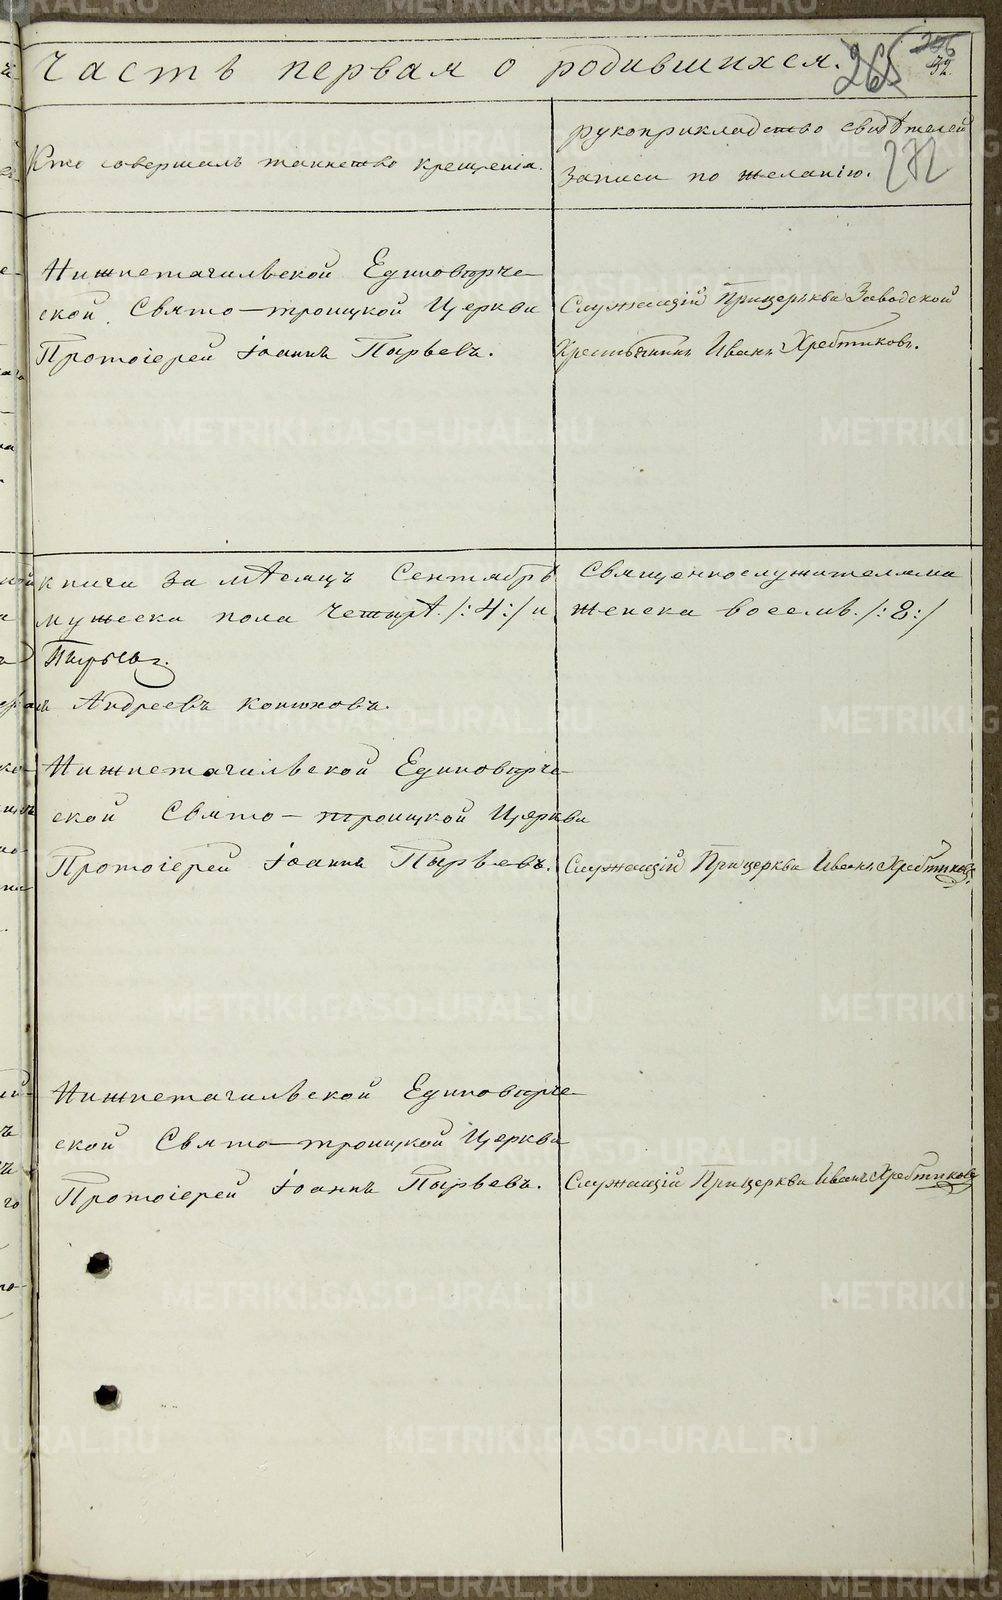 Часть первая о родившихся.
265
32.
Кто совершалъ таинство крещенія.
рукоприкладство свидѣтелей
записи по желанію.
272
Нижнетагильской Единовѣрче-
ской Свято-троицкой Церкви
Протоіерей Іоаннъ Пырьевъ.
Служащій При церькви Заводской
Крестьянинъ Иванъ Хребтиковъ.
книги за мѣсяцъ Сентябрь священнослужителями
мужеска пола четырѣ /:4:/ и женска восемь /:8:/
Пырьевъ.
Андреевъ Конюховъ.
Нижнетагильской Единовѣрче-
ской Свято-троицкой Церкви
Протоіерей Іоаннъ Пырьевъ.
Служащій При церкви Иванъ Хребтиковъ.
Нижнетагильской Единовѣрче-
ской Свято-троицкой Церкви
Протоіерей Іоаннъ Пырьевъ.
Служащій При церкви Иванъ Хребтиковъ
METRIKI.GASO-URAL.RU